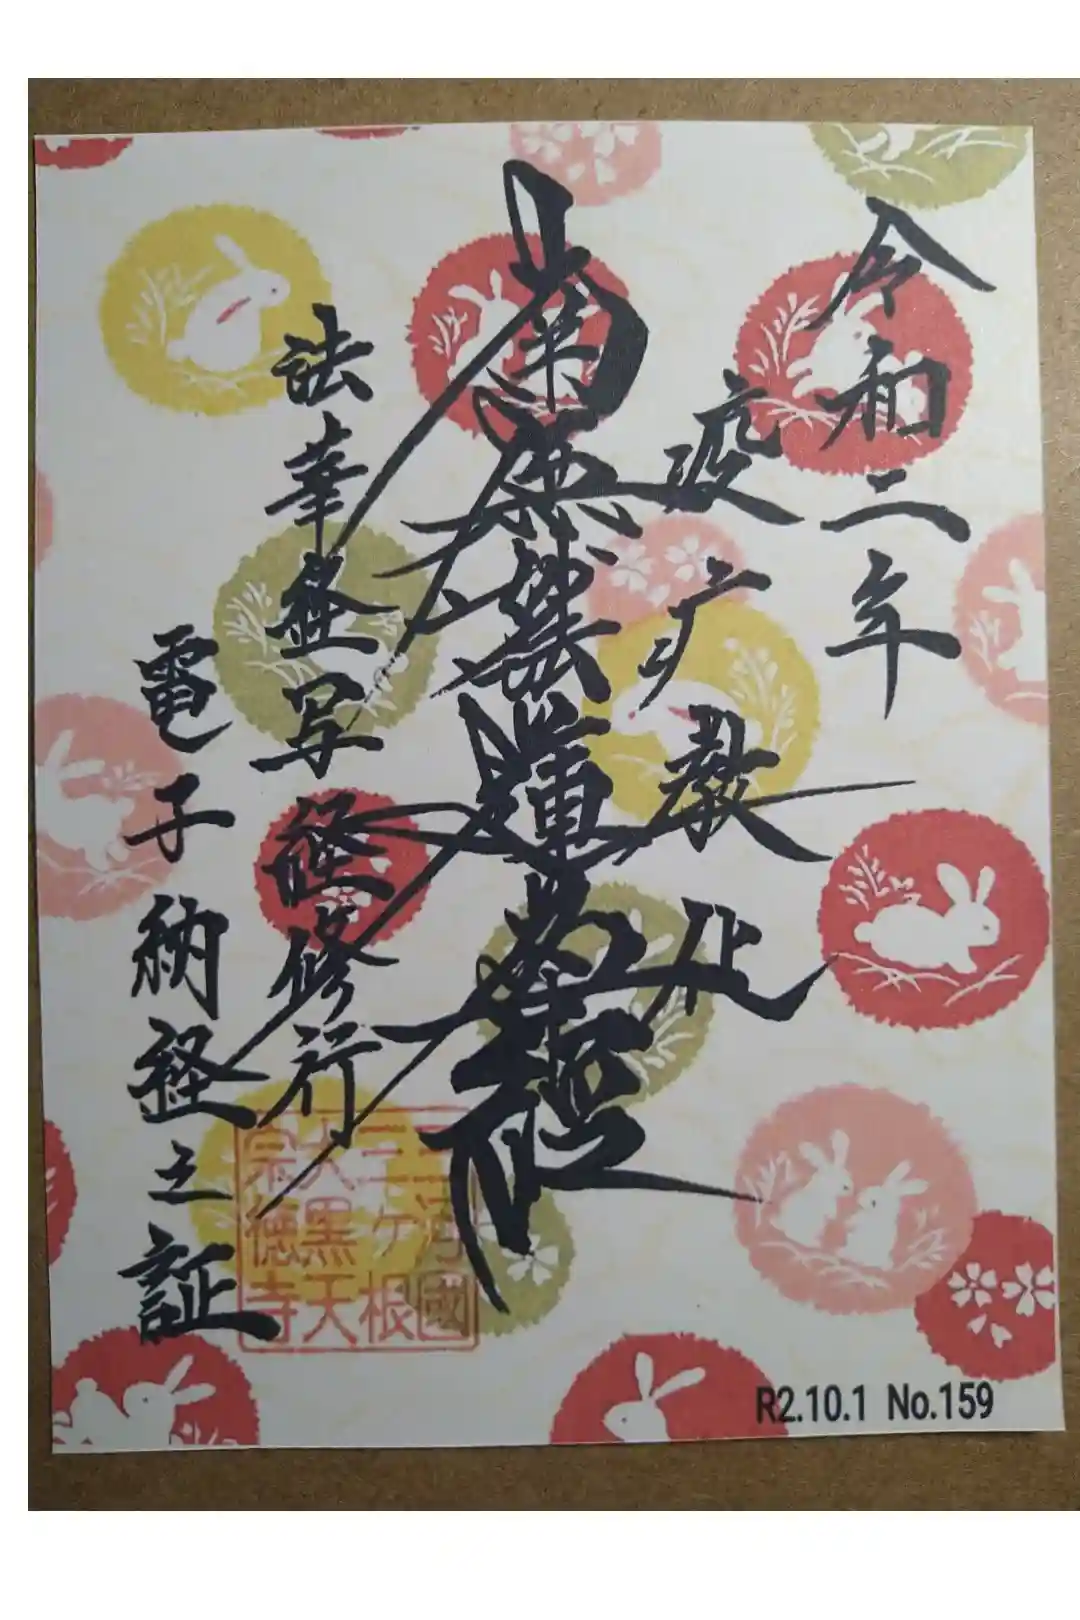 令和二年
疫疒教化
南無妙法蓮華経
法華経写経修行
電子納経之証
三ヶ根
大黒天
宗徳寺
R2.10.1 No.159